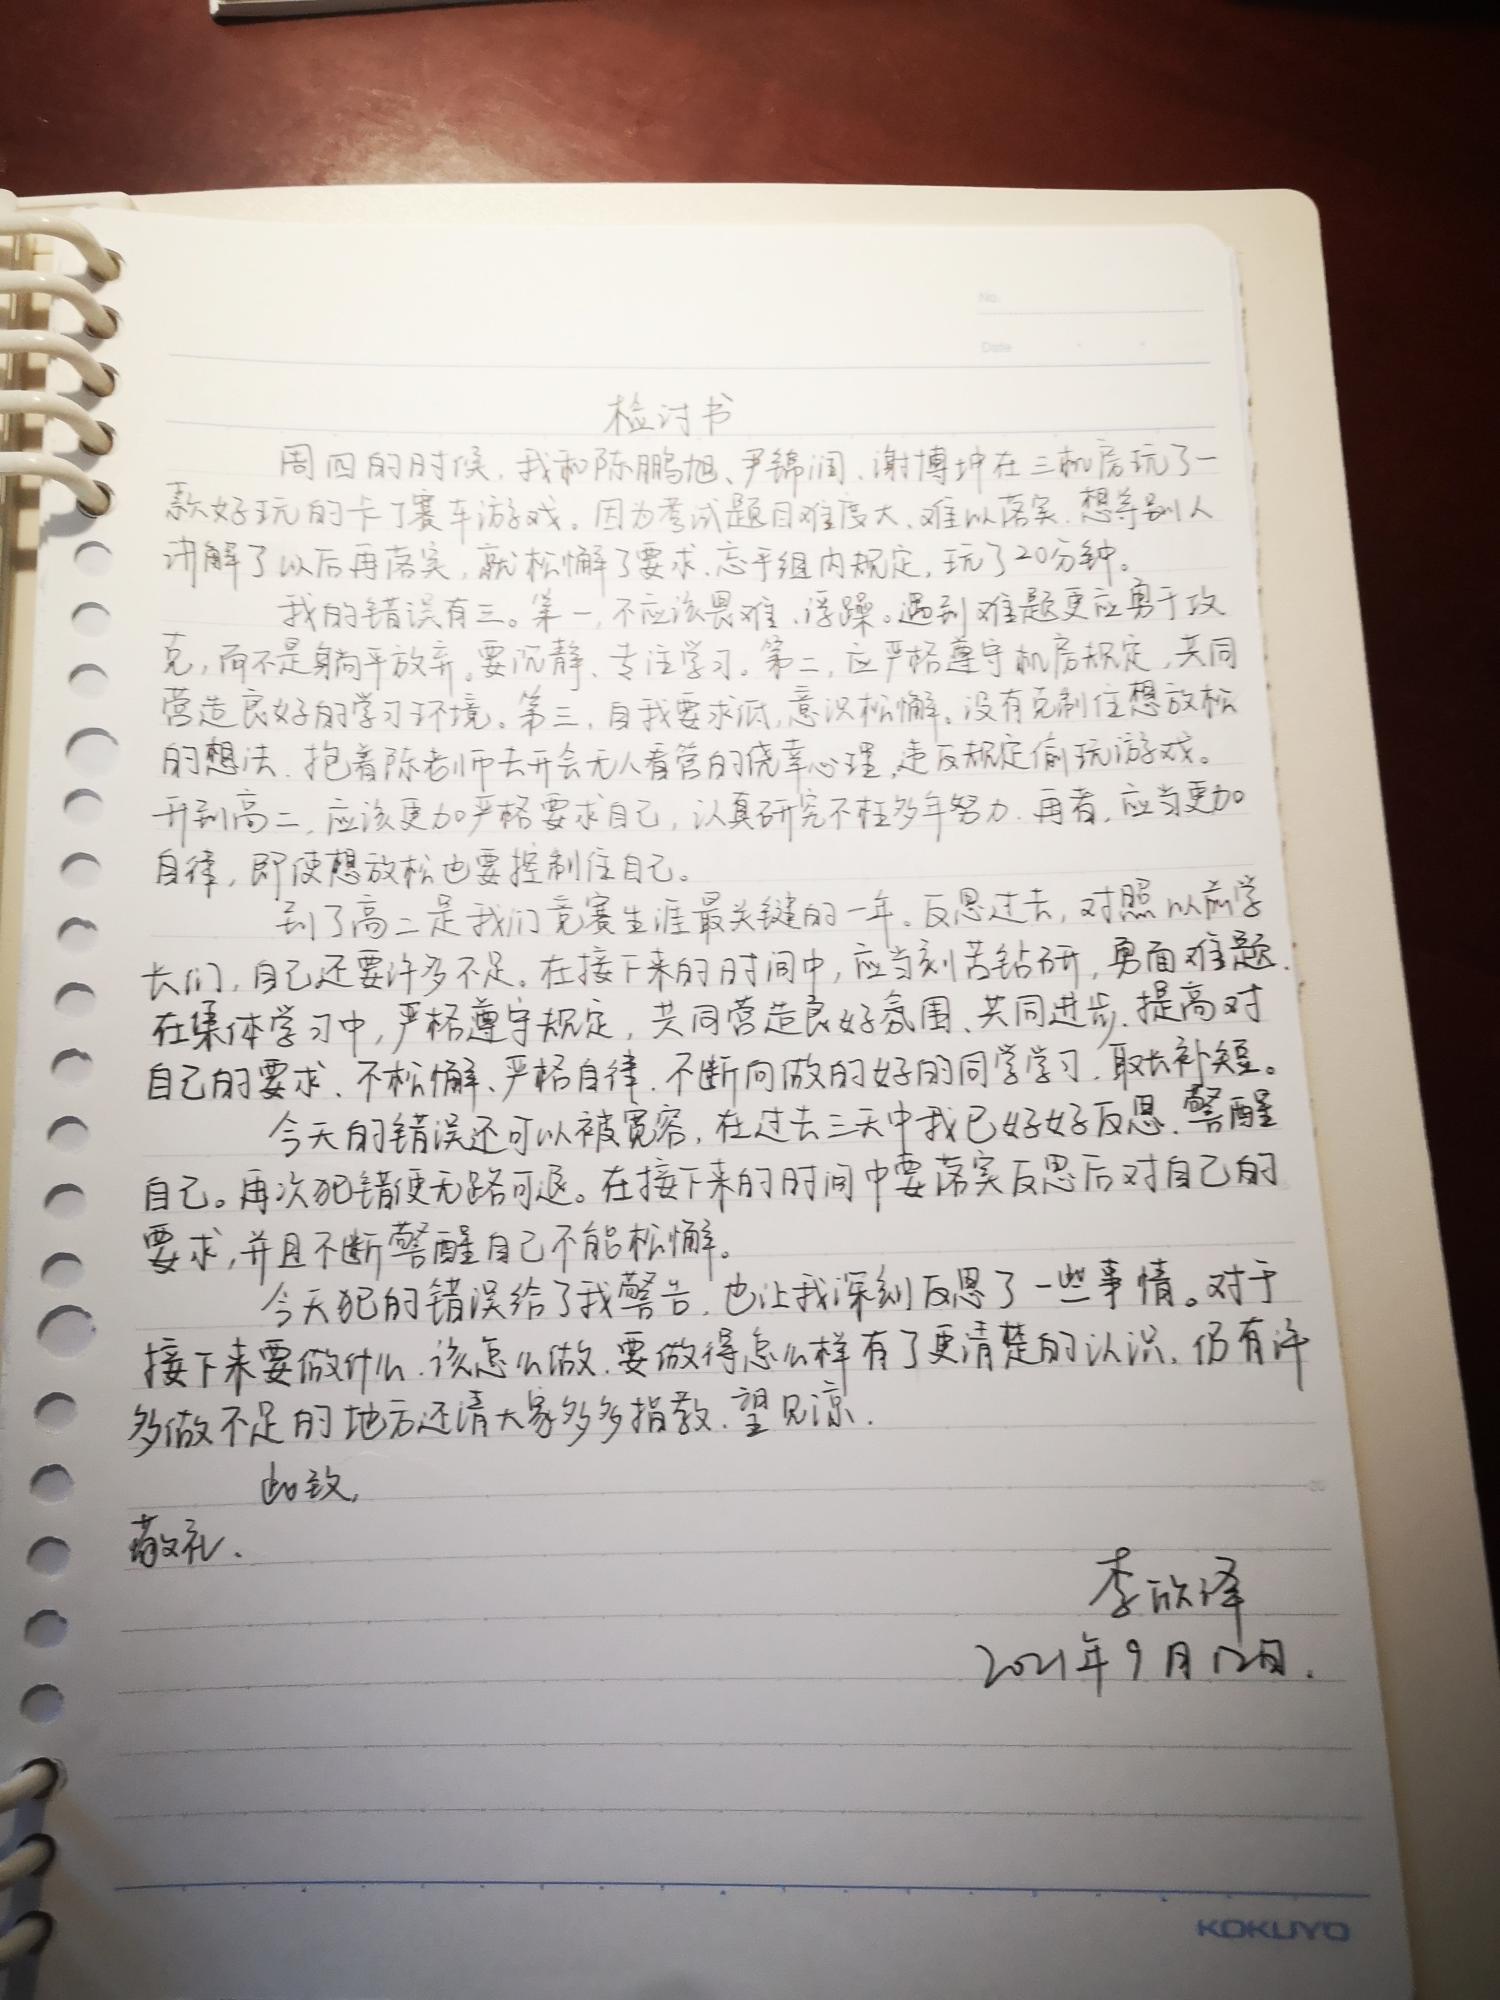 No.
Date
检讨书
周四的时候，我和陈鹏旭、尹锦润、谢博坤在三机房玩了一
款好玩的卡丁赛车游戏。因为考试题目难度大、难以落实，想等别人
讲解了以后再落实，就松懈了要求，忘乎组内规定，玩了20分钟。
我的错误有三。第一，不应该畏难、浮躁。遇到难题更应勇于攻
克，而不是躺平放弃。要沉静、专注学习。第二，应严格遵守机房规定，共同
营造良好的学习环境。第三，自我要求低，意识松懈。没有克制住想放松
的想法，抱着陈老师去开会无人看管的侥幸心理，违反规定偷玩游戏。
升到高二，应该更加严格要求自己，认真研究不枉多年努力。再者，应当更加
自律，即使想放松也要控制住自己。
到了高二是我们竞赛生涯最关键的一年。反思过去，对照以前学
长们，自己还要许多不足。在接下来的时间中，应当刻苦钻研，勇面难题。
在集体学习中，严格遵守规定，共同营造良好氛围、共同进步。提高对
自己的要求、不松懈、严格自律，不断向做的好的同学学习，取长补短。
今天的错误还可以被宽容，在过去三天中我已好好反思，警醒
自己。再次犯错便无路可退。在接下来的时间中要落实反思后对自己的
要求，并且不断警醒自己不能松懈。
今天犯的错误给了我警告，也让我深刻反思了一些事情。对于
接下来要做什么、该怎么做、要做得怎么样有了更清楚的认识，仍有许
多做不足的地方还请大家多多指教，望见谅.
此致，
敬礼.
李欣泽
2021年9月12日.
KOKUYO